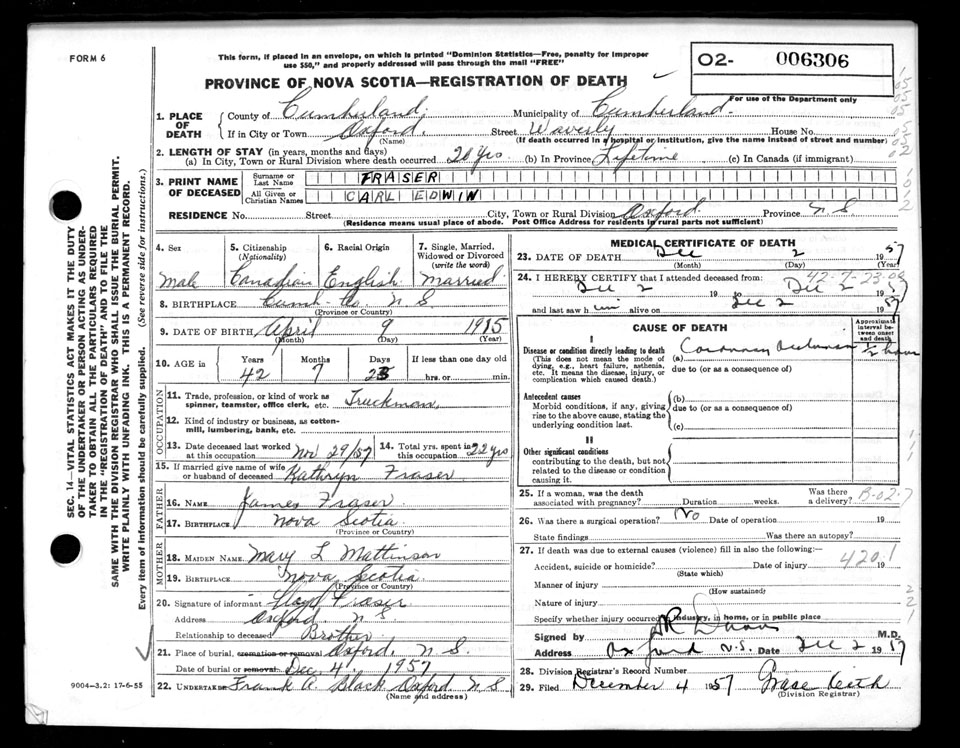 FORM 6
This form, if placed in an envelope, on which is printed "Dominion Statistics—Free, penalty for improper
use $50," and properly addressed will pass through the mail "FREE"
PROVINCE OF NOVA SCOTIA—REGISTRATION OF DEATH
O2- 006306
For use of the Department only
1. PLACE OF DEATH
County of Cumberland, Municipality of Cumberland
If in City or Town Oxford, Street Waverly House No.
(Name) (If death occurred in a hospital or institution, give the name instead of street and number)
2. LENGTH OF STAY (in years, months and days)
(a) In City, Town or Rural Division where death occurred 20 yrs (b) In Province Lifetime (c) In Canada (if immigrant)
3. PRINT NAME OF DECEASED
Surname or Last Name FRASER
All Given or Christian Names CARL EDWIN
RESIDENCE No. Street City, Town or Rural Division Oxford Province N S
(Residence means usual place of abode. Post Office Address for residents in rural parts not sufficient)
4. Sex Male
5. Citizenship (Nationality) Canadian
6. Racial Origin English
7. Single, Married, Widowed or Divorced (write the word) Married
8. BIRTHPLACE Cumb. Co. N S
(Province or Country)
9. DATE OF BIRTH April 9 1915
(Month) (Day) (Year)
10. AGE in Years Months Days If less than one day old
42 7 23 hrs. or min.
OCCUPATION
11. Trade, profession, or kind of work as spinner, teamster, office clerk, etc. Truckman
12. Kind of industry or business, as cotton-mill, lumbering, bank, etc.
13. Date deceased last worked at this occupation Nov 29/57
14. Total yrs. spent in this occupation 22 yrs
15. If married give name of wife or husband of deceased Kathryn Fraser
FATHER
16. NAME James Fraser
17. BIRTHPLACE Nova Scotia
(Province or Country)
MOTHER
18. MAIDEN NAME Mary L Mattinson
19. BIRTHPLACE Nova Scotia
(Province or Country)
20. Signature of informant Lloyd Fraser
Address Oxford N S
Relationship to deceased Brother
21. Place of burial, cremation or removal Oxford, N S.
Date of burial or removal Dec. 4, 1957
22. UNDERTAKER Frank A. Black Oxford N S
(Name and address)
MEDICAL CERTIFICATE OF DEATH
23. DATE OF DEATH Dec 2 1957
(Month) (Day) (Year)
24. I HEREBY CERTIFY that I attended deceased from:
42-7-23-09
Dec 2 19 to Dec 2 1957
and last saw him alive on Dec 2 1957
CAUSE OF DEATH
Approximate interval between onset and death
I
Disease or condition directly leading to death (a) Coronary ½ hour
(This does not mean the mode of dying, e.g., heart failure, asthenia, etc. It means the disease, injury, or complication which caused death.)
due to (or as a consequence of)
Antecedent causes (b)
Morbid conditions, if any, giving rise to the above cause, stating the underlying condition last.
due to (or as a consequence of)
(c)
II
Other significant conditions
contributing to the death, but not related to the disease or condition causing it.
25. If a woman, was the death associated with pregnancy? Duration weeks. Was there a delivery?
B-02-7
26. Was there a surgical operation? No Date of operation 19
State findings Was there an autopsy?
27. If death was due to external causes (violence) fill in also the following:—
Accident, suicide or homicide? Date of injury 19
420.1
(State which)
Manner of injury
(How sustained)
Nature of injury
Specify whether injury occurred in industry, in home, or in public place
Signed by M.D.
Address Oxford N.S. Date Dec 2 1957
28. Division Registrar's Record Number
29. Filed December 4 1957 Grace Keith
(Division Registrar)
9004—3.2: 17-6-55
SEC. 14—VITAL STATISTICS ACT MAKES IT THE DUTY
OF THE UNDERTAKER OR PERSON ACTING AS UNDER-
TAKER TO OBTAIN ALL THE PARTICULARS REQUIRED
IN THE "REGISTRATION OF DEATH" AND TO FILE THE
SAME WITH THE DIVISION REGISTRAR WHO SHALL ISSUE THE BURIAL PERMIT.
WRITE PLAINLY WITH UNFADING INK. THIS IS A PERMANENT RECORD.
Every item of information should be carefully supplied. (See reverse side for instructions.)